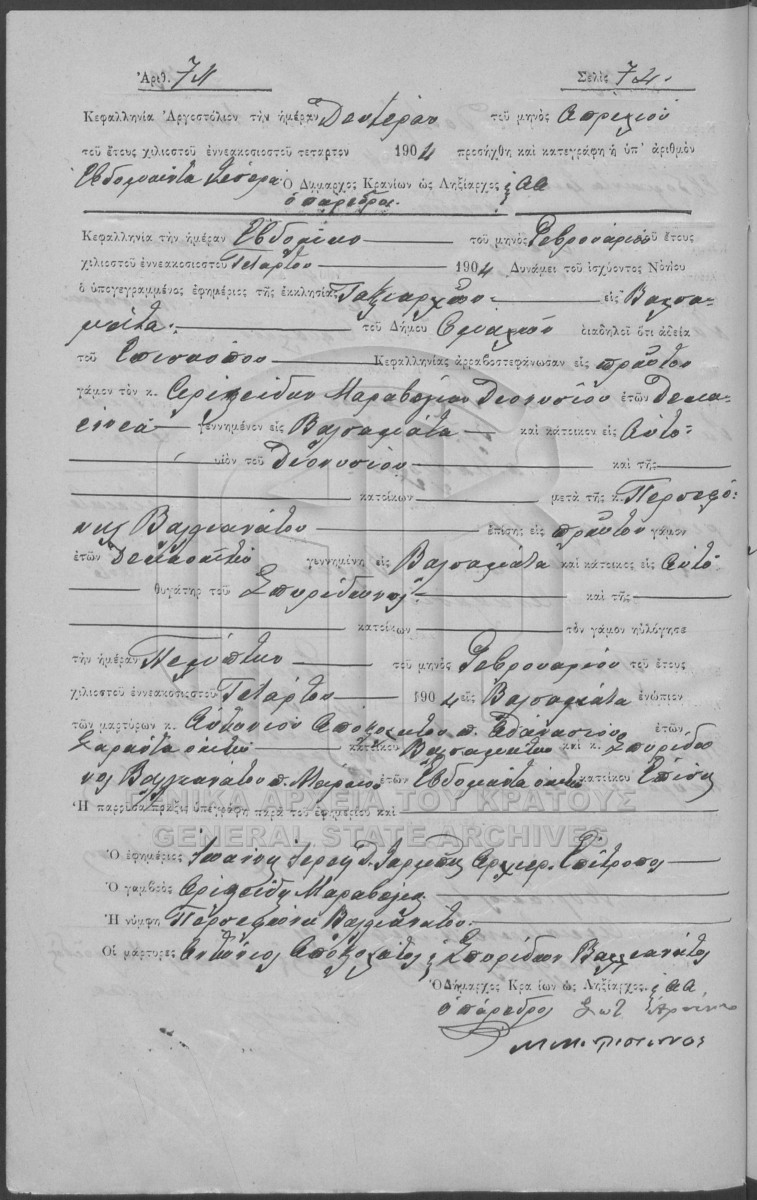 Ἀριθ. 74 Σελὶς 74.
Κεφαλληνία Ἀργοστόλιον τὴν ἡμέραν Δευτέραν τοῦ μηνὸς Απριλίου
τοῦ ἔτους χιλιοστοῦ ἐννεακοσιοστοῦ τεταρτον 1904 προσήχθη καὶ κατεγράφη ἡ ὑπ' ἀριθμὸν
Εβδομηκοντα τεσσερα Ὁ Δήμαρχος Κρανίων ὡς Ληξίαρχος ε αα
ο πάρεδρος
Κεφαλληνία τὴν ἡμέραν Εβδόμην τοῦ μηνὸς Φεβρουαρίου τοῦ ἔτους
χιλιοστοῦ ἐννεακοσιοστοῦ Τετάρτου 1904 Δυνάμει τοῦ ἰσχύοντος Νόμου
ὁ ὑπογεγραμμένος ἐφημέριος τῆς ἐκκλησίας Ταξιαρχῶν εἰς Βαλσα-
μάτα τοῦ Δήμου Ομαλῶν διαδηλοῖ ὅτι ἀδεία
τοῦ Επισκόπου Κεφαλληνίας ἀρραβοστεφάνωσαν εἰς πρῶτον
γάμον τὸν κ. Αριστείδην Μαραβέγιαν Διονυσίου ἐτῶν Δεκα-
εννεά γεννημένον εἰς Βαλσαμάτα καὶ κάτοικον εἰς Αὐτό
υἱὸν τοῦ Διονυσίου καὶ τῆς
κατοίκων μετὰ τῆς κ. Περσεφό-
νης Βαλλιανάτου ἐπίσης εἰς πρῶτον γάμον
ἐτῶν Δεκαοκτώ γεννημένη εἰς Βαλσαμάτα καὶ κάτοικος εἰς Αὐτό
θυγάτηρ τοῦ Σπυρίδωνος καὶ τῆς
κατοίκων τὸν γάμον ηὐλόγησε
τὴν ἡμέραν Πέμπτην τοῦ μηνὸς Φεβρουαρίου τοῦ ἔτους
χιλιοστοῦ ἐννεακοσιοστοῦ Τετάρτου 1904 εἰς Βαλσαμάτα ἐνώπιον
τῶν μαρτύρων κ. Αντωνίου Αποστολάτου π. Αθανασίου ἐτῶν
Σαράντα οκτώ κατοίκου Βαλσαμάτων καὶ κ. Σπυρίδω
νος Βαλλιανάτου π. Μαρίνου ἐτῶν Εβδομήντα οκτώ κατοίκου Επίσης
Ἡ παρροῦσα πράξις ὑπεγράφη παρὰ τοῦ ἐφημερίου καὶ
ΓΕΝΙΚΑ ΑΡΧΕΙΑ ΤΟΥ ΚΡΑΤΟΥΣ
GENERAL STATE ARCHIVES
Ὁ ἐφημέριος Ιωάννης Ιερεύς Αρχιερ. Επίτροπος
Ὁ γαμβρὸς Αριστείδης Μαραβέγιας
Ἡ νύμφη Περσεφώνη Βαλλιανάτου
Οἱ μάρτυρες Αντώνιος Αποστολάτος Σπυρίδων Βαλλιανάτος
Ὁ Δήμαρχος Κρανίων ὡς Ληξίαρχος ε αα
ο πάρεδρος